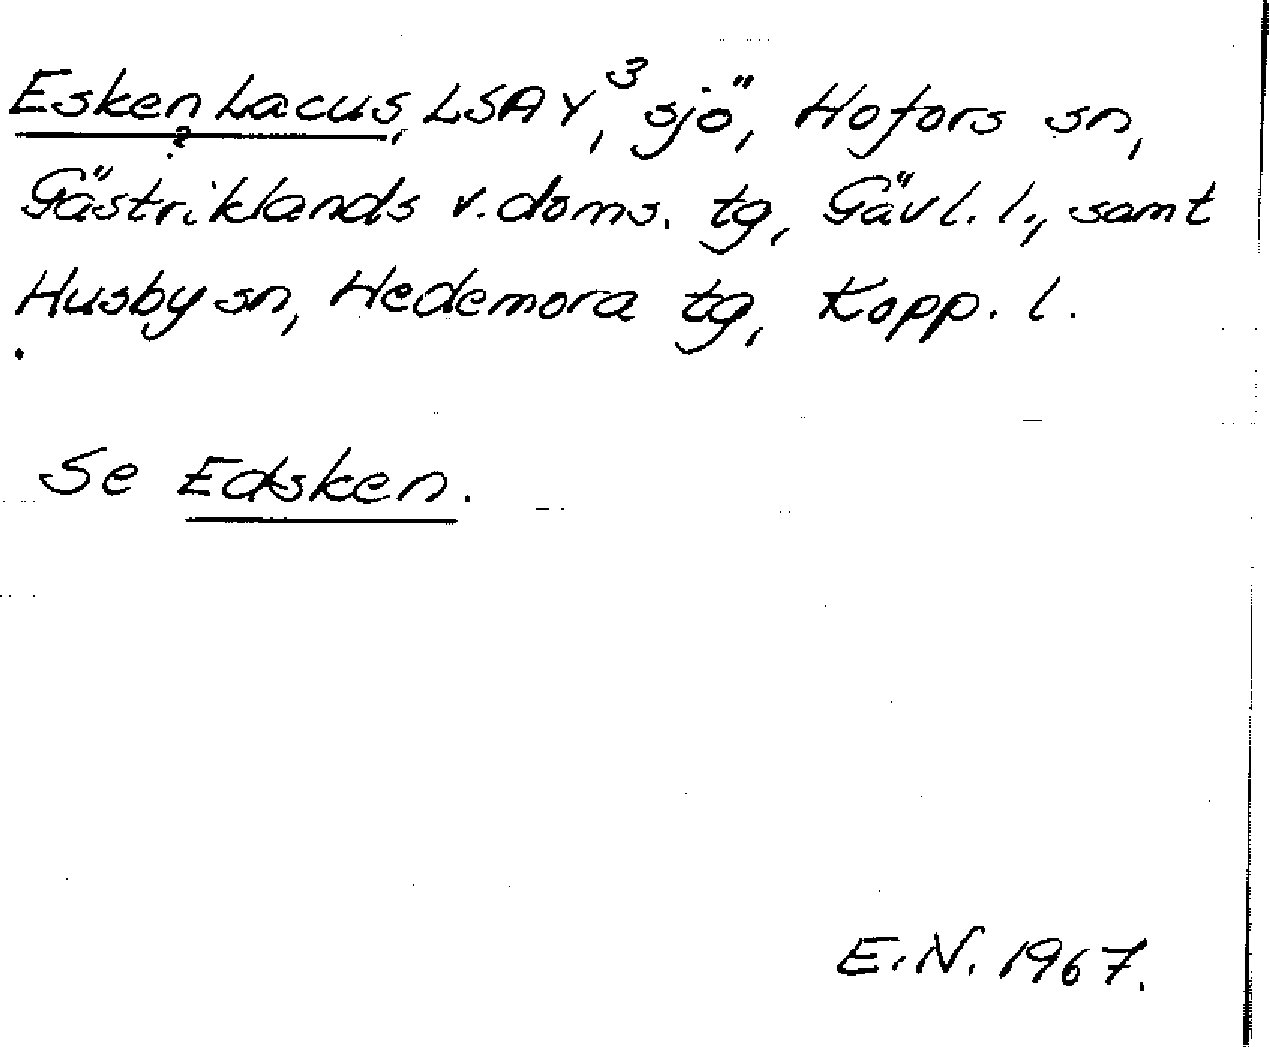 Esken Lacus, LSA Y³, sjö, Hofors sn,
Gästriklands v. doms. tg, Gävl. l., samt
Husby sn, Hedemora tg, Kopp. l.
Se Edsken.
E.N. 1967.